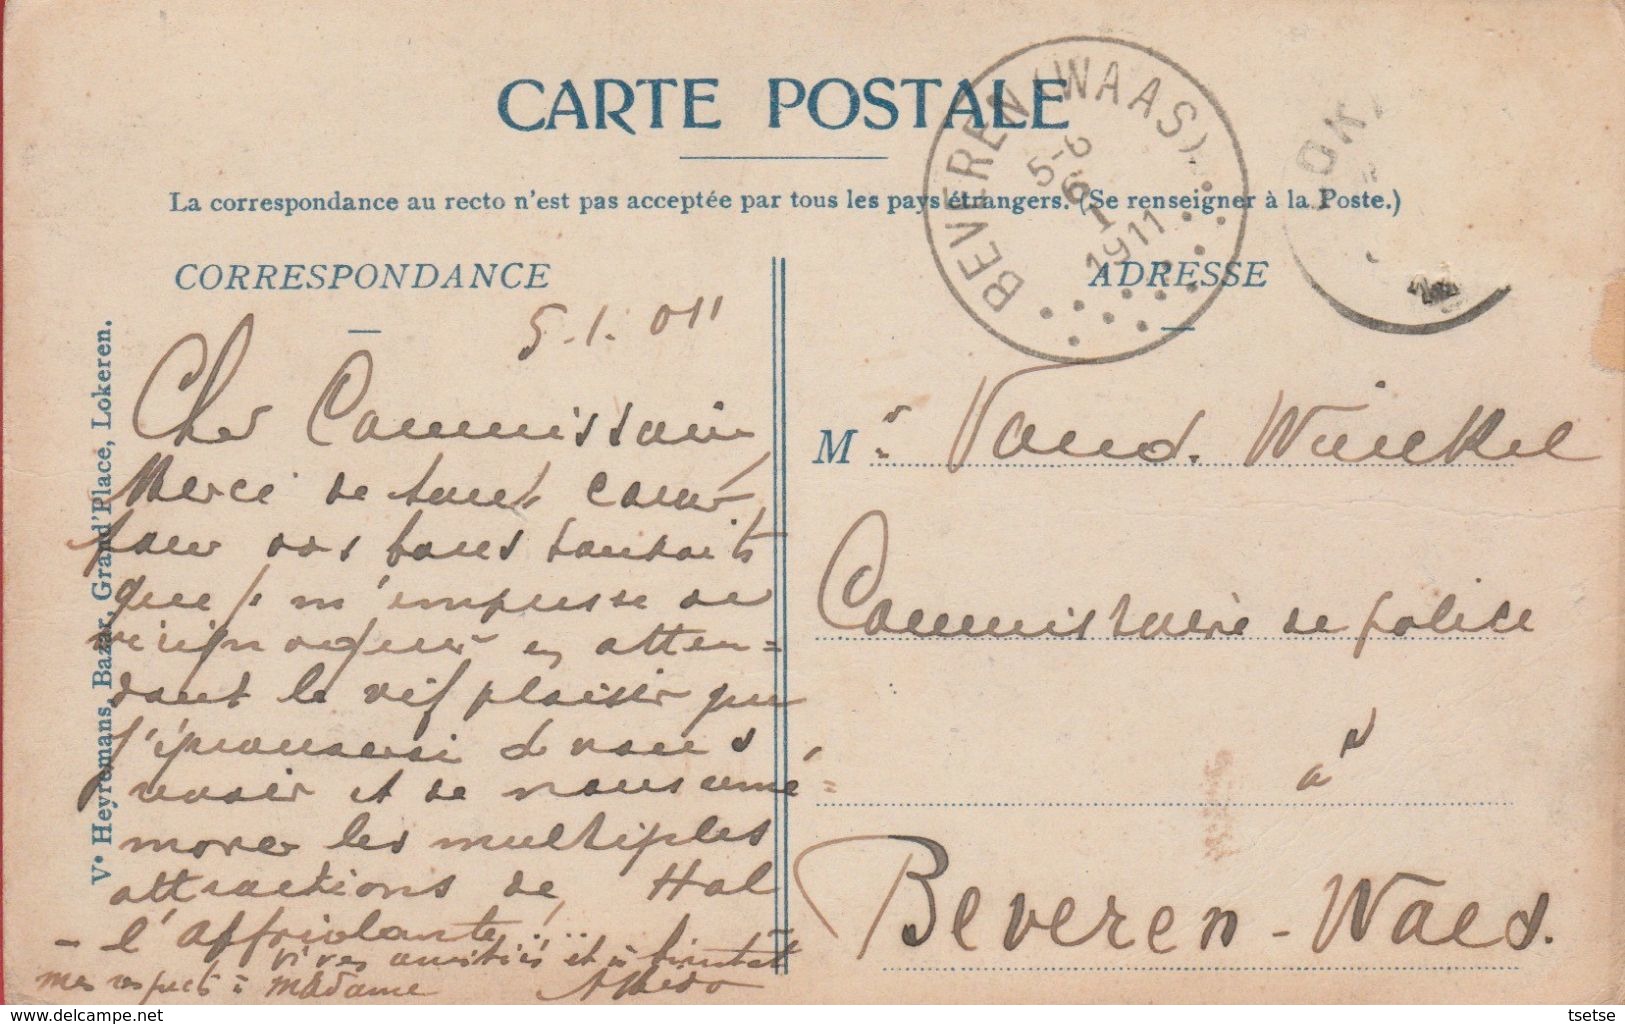 CARTE POSTALE
BEVEREN (WAAS)
5-6
6
1
1911
La correspondance au recto n'est pas acceptée par tous les pays étrangers. (Se renseigner à la Poste.)
CORRESPONDANCE
5.1.011
Cher Commissaire
Merci de tout cœur
pour vos bons souhaits
que je m'empresse de
réciproquer en atten=
dant le vif plaisir que
j'éprouverai de vous
revoir et de nous remé=
morer les multiples
attractions de Hal
- l'affriolante! ...
vives amitiés et à bientôt
mes respects à madame
Ve Heyremans, Bazar, Grand'Place, Lokeren.
ADRESSE
Mr Vand. Winckel
Commissaire de police
à
Beveren-Waes.
delcampe.net
tsetse